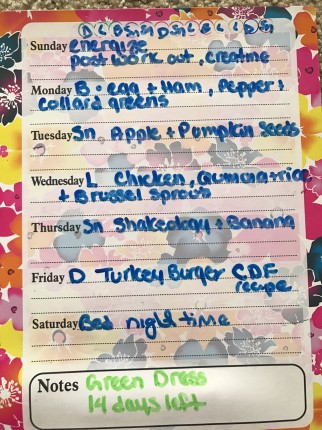 Sunday energize
post work out, creatine
Monday B - egg + Ham, Pepper +
collard greens
Tuesday Sn Apple + Pumpkin Seeds
Wednesday L Chicken, rice
+ Brussel Sprouts
Thursday Sn Shakeology + Banana
Friday D Turkey Burger CDF
recipe
Saturday Bed night time
Notes Green Dress
14 days left